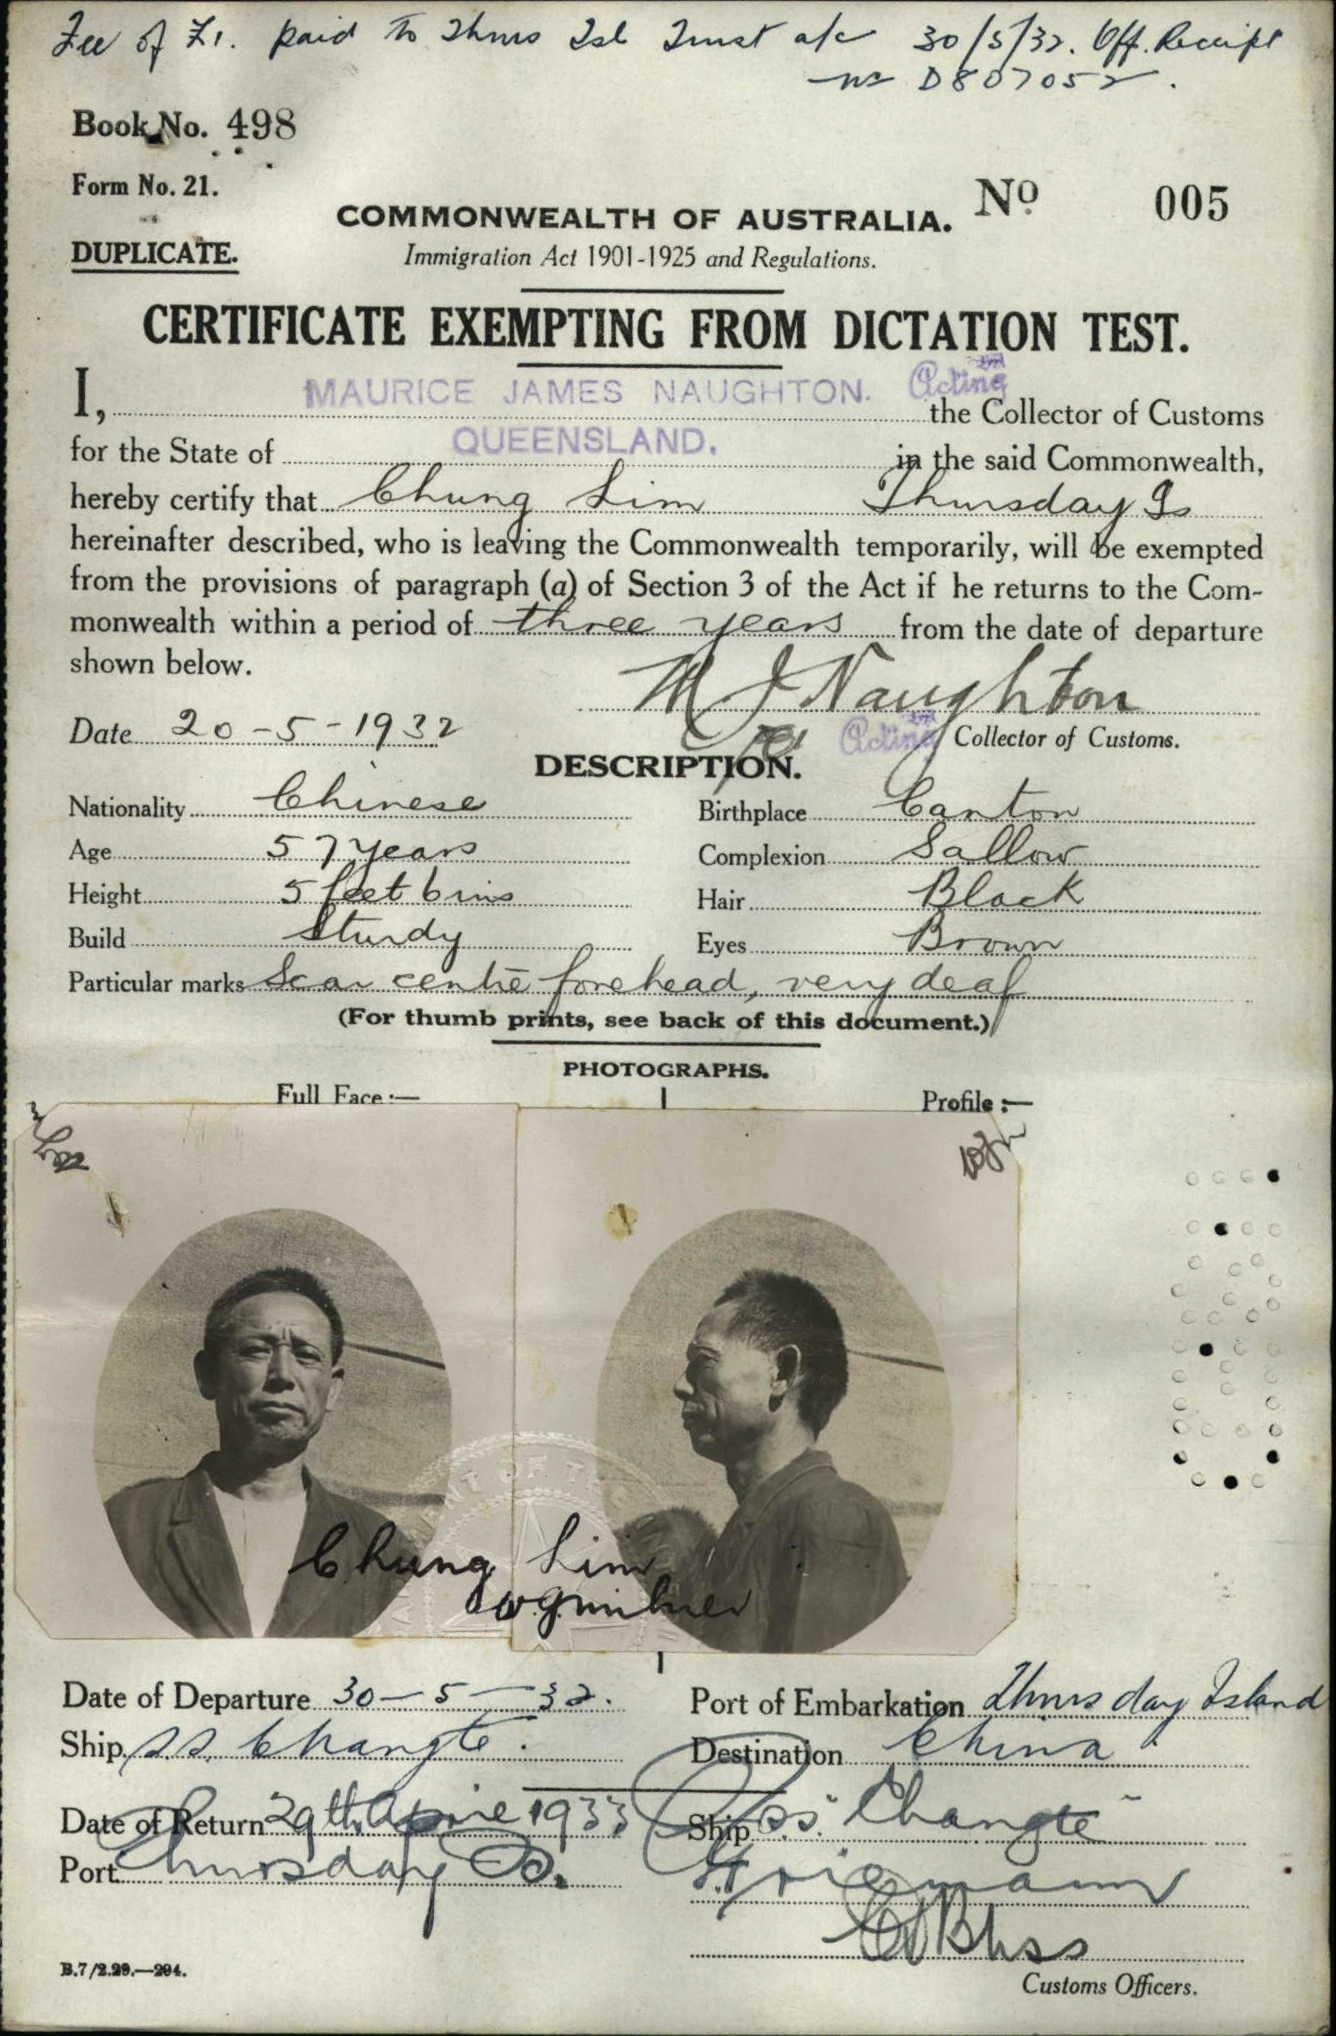 Fee of £1. paid to Thurs Isl Trust a/c 30/5/32. Off. Receipt
no D807052.
Book No. 498
Form No. 21.
COMMONWEALTH OF AUSTRALIA. No 005
DUPLICATE.
Immigration Act 1901-1925 and Regulations.
CERTIFICATE EXEMPTING FROM DICTATION TEST.
I, MAURICE JAMES NAUGHTON. Acting the Collector of Customs
for the State of QUEENSLAND. in the said Commonwealth,
hereby certify that Chung Lim Thursday Is
hereinafter described, who is leaving the Commonwealth temporarily, will be exempted
from the provisions of paragraph (a) of Section 3 of the Act if he returns to the Com-
monwealth within a period of three years from the date of departure
shown below.
M J Naughton
Date 20-5-1932 Acting Collector of Customs.
DESCRIPTION.
Nationality Chinese Birthplace Canton
Age 57 years Complexion Sallow
Height 5 feet 6 ins Hair Black
Build Sturdy Eyes Brown
Particular marks Scar centre forehead, very deaf
(For thumb prints, see back of this document.)
PHOTOGRAPHS.
Full Face :— Profile :—
Chung Lim
Date of Departure 30-5-32. Port of Embarkation Thursday Island
Ship ss. Changte. Destination China
Date of Return 29th April 1933 Ship s.s. "Changte"
Port Thursday Is.
B.7/2.29.—294.
Customs Officers.